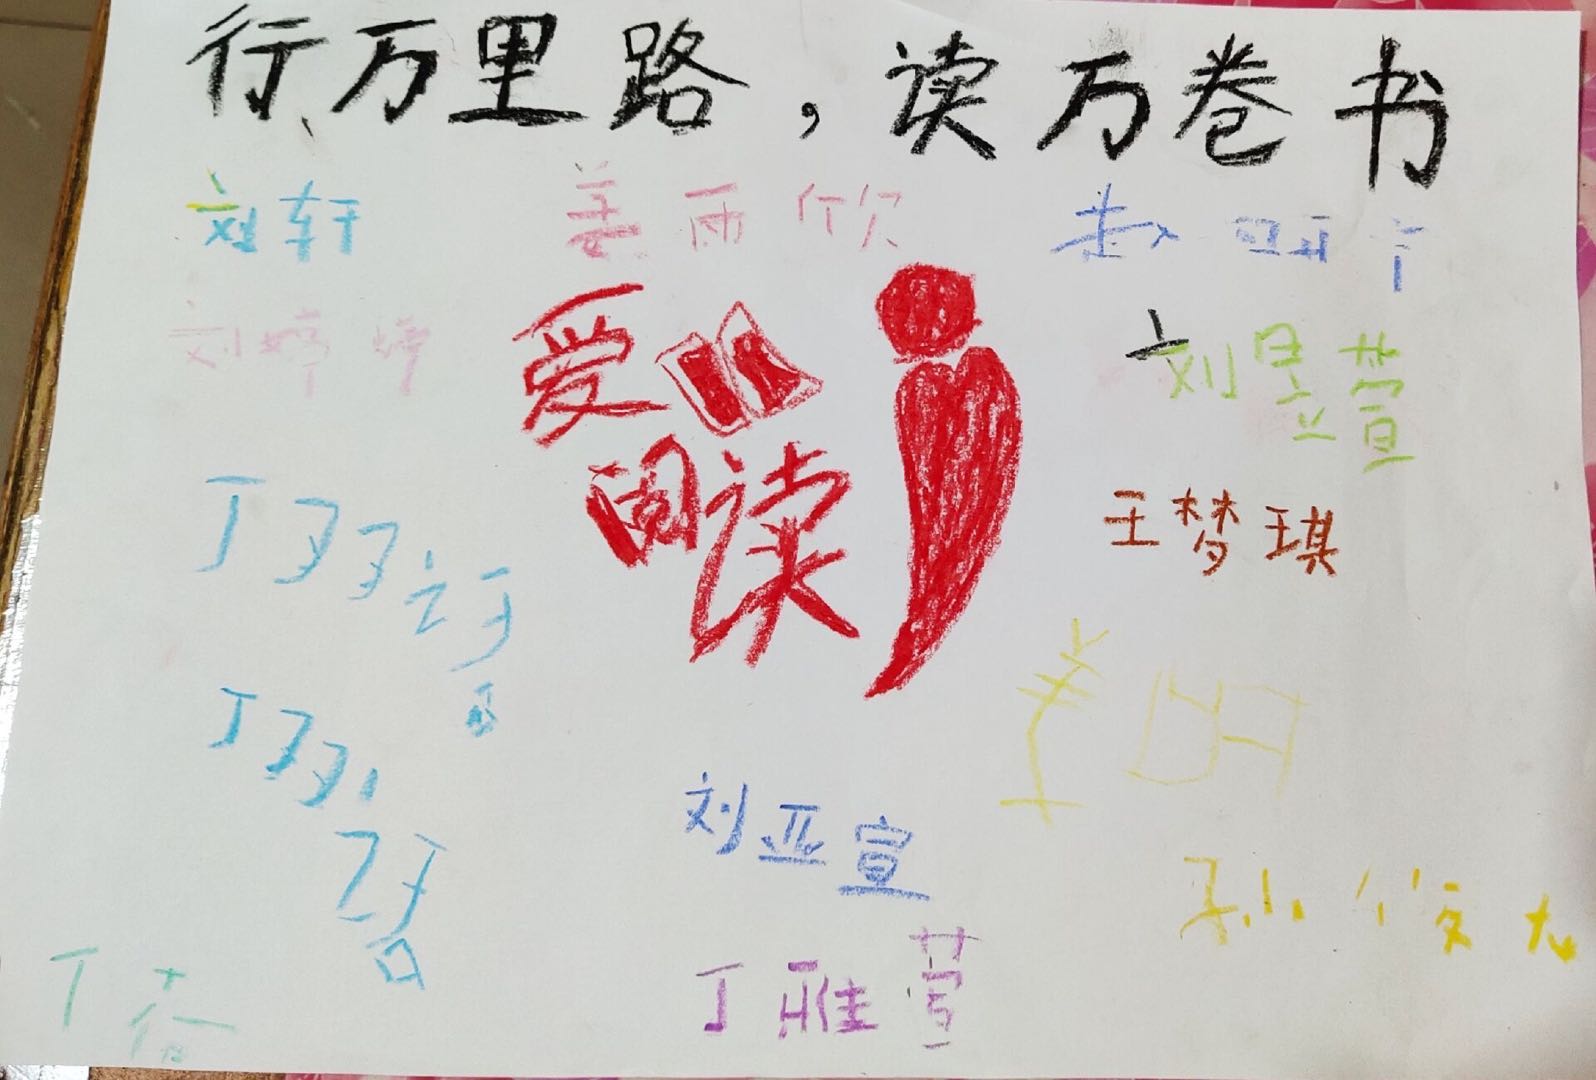 行万里路，读万卷书
刘轩
姜雨欣
赵
刘婷婷
爱
阅读
刘昱萱
王梦琪
丁
丁
刘亚宣
孙俊龙
丁蓉
丁雅萱